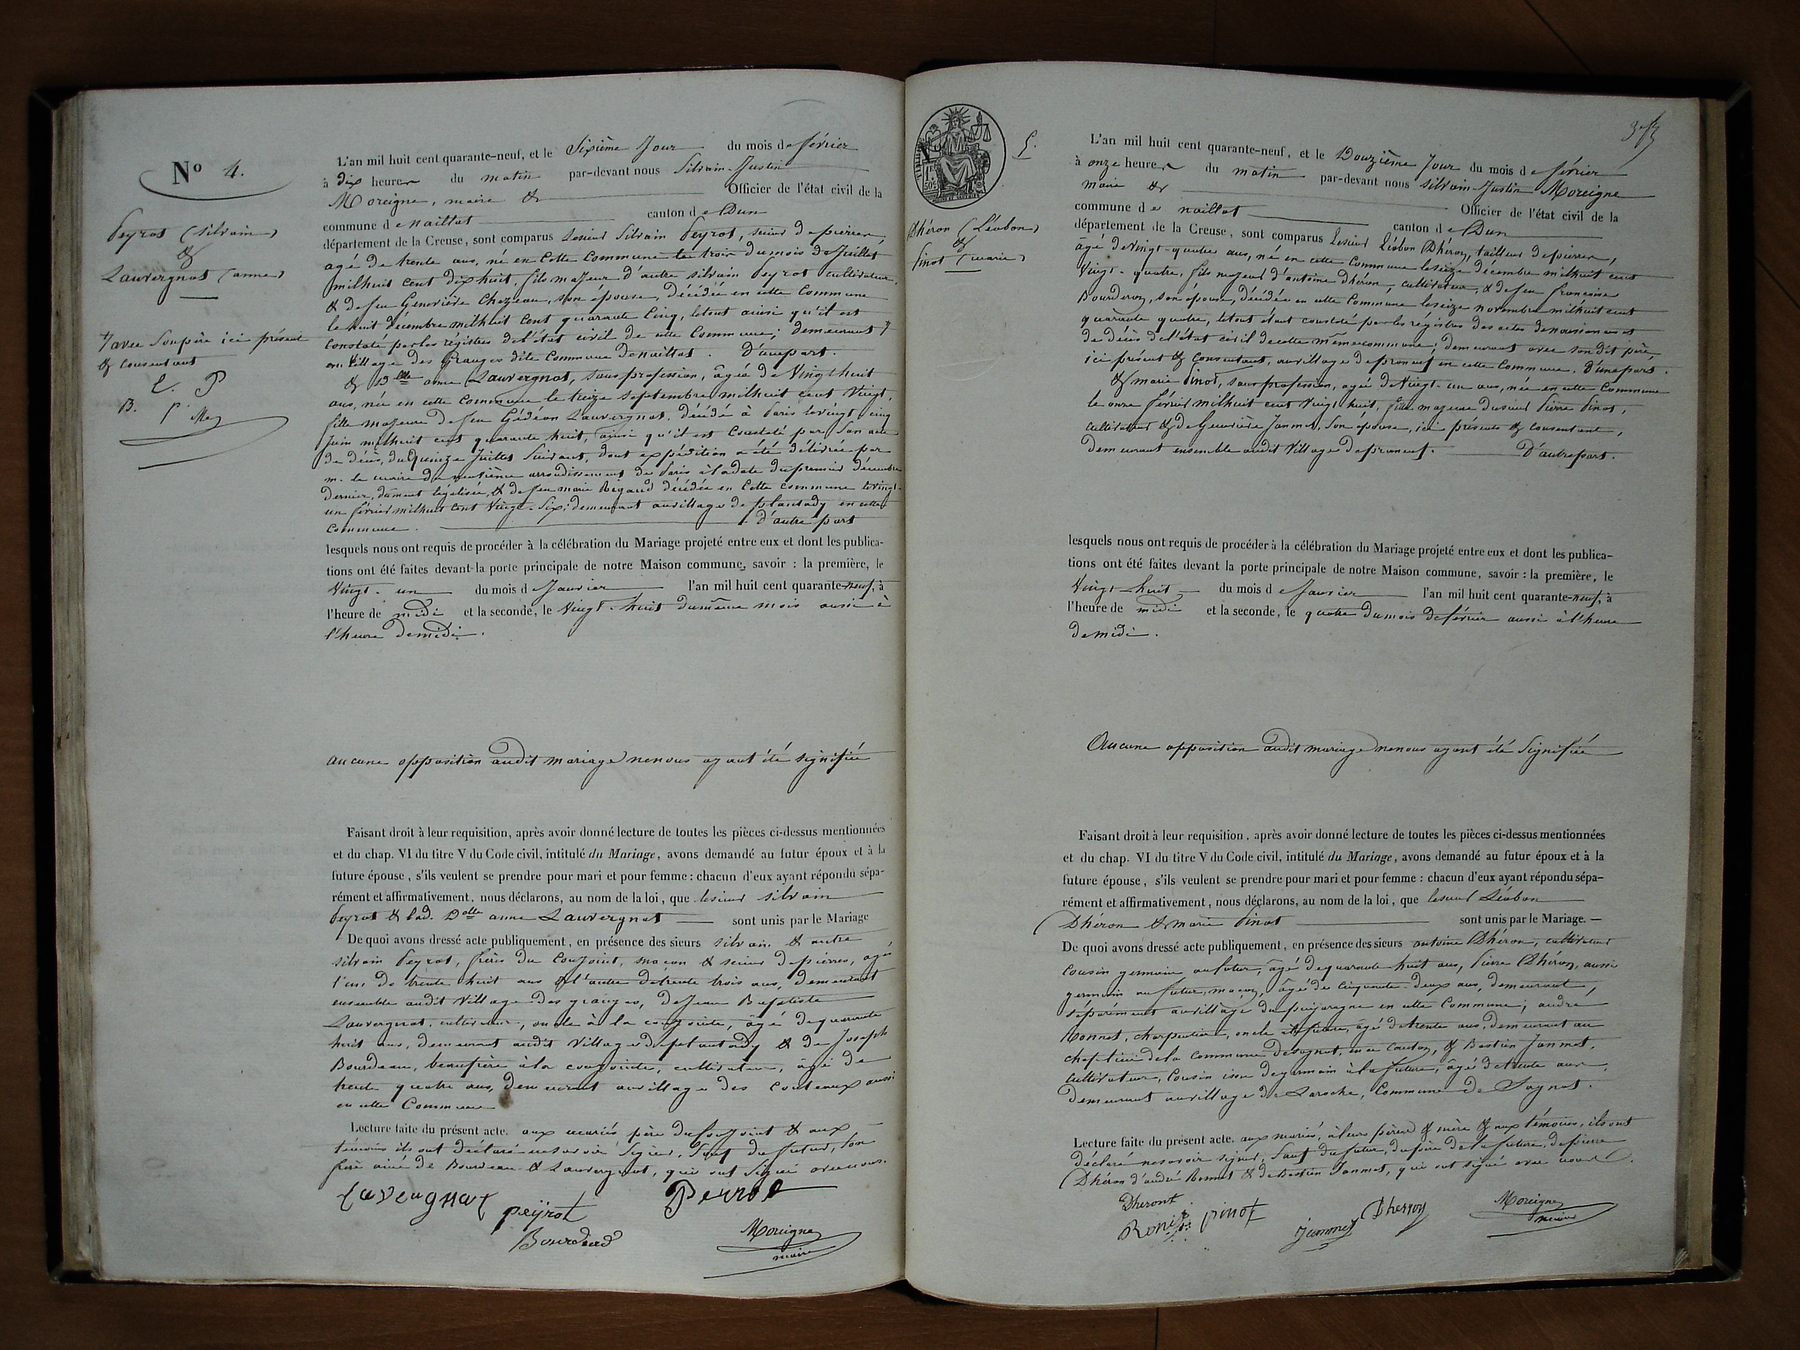 No 4.
Peyrot (silvain)
&
Lauvergnat (anne)
avec son père ici présent
& consentant
L'an mil huit cent quarante-neuf, et le Sixième Jour du mois de février
à dix heures du matin par-devant nous Silvain-Justin
Moreigne, maire & Officier de l'état civil de la
commune de naillat canton de Dun
département de la Creuse, sont comparus Lesieur Silvain Peyrot, scieur de pierres,
âgé de trente ans, né en cette Commune le trois du mois de Juillet
milhuit cent dix huit, fils majeur d'autre silvain Peyrot cultivateur,
& de feu Genevière Chezeau, son épouse, Décédée en cette Commune
le huit décembre milhuit cent quarante cinq, letout ainsi qu'il est
constaté par les registres de l'état civil de cette Commune; demeurant
au Village des Granges dite Commune de naillat. D'une part.
& Dlle anne Lauvergnat, sans profession, âgée de Vingt huit
ans, née en cette Commune le treize septembre milhuit cent Vingt,
fille majeure de feu Gédéon Lauvergnat, décédé à Paris le vingt cinq
Juin milhuit cent quarante huit, ainsi qu'il est Constaté par son acte
de décès, du Quinze Juillet Suivant, dont expédition a été délivrée par
m. le maire du neuvième arrondissement de Paris à la date du premier décembre
dernier, dûment légalisée, & de feu marie Rigaud décédée en Cette commune le vingt-
un février milhuit cent Vingt-Six; demeurant au village de plantady en cette
Commune. D'autre part
lesquels nous ont requis de procéder à la célébration du Mariage projeté entre eux et dont les publica-
tions ont été faites devant la porte principale de notre Maison commune, savoir : la première, le
Vingt-un du mois de Janvier l'an mil huit cent quarante-neuf, à
l'heure de midi et la seconde, le Vingt-huit du même mois aussi à
l'heure de midi.
aucune opposition audit mariage ne nous ayant été signifiée
Faisant droit à leur requisition, après avoir donné lecture de toutes les pièces ci-dessus mentionnées
et du chap. VI du titre V du Code civil, intitulé du Mariage, avons demandé au futur époux et à la
future épouse, s'ils veulent se prendre pour mari et pour femme : chacun d'eux ayant répondu sépa-
rément et affirmativement, nous déclarons, au nom de la loi, que lesieur silvain
Peyrot & lad. Dlle anne Lauvergnat sont unis par le Mariage
De quoi avons dressé acte publiquement, en présence des sieurs silvain & autre
silvain Peyrot, frères du Conjoint, maçon & scieur de pierres, agés
l'un de trente huit ans & l'autre de trente trois ans, demeurant
ensemble audit Village des granges, de Jean Baptiste
Lauvergnat, cultivateur, oncle à la conjointe, âgé de quarante
huit ans, demeurant audit Village de plantady & de Joseph
Bourdeau, beaufrère à la conjointe, cultivateur, âgé de
trente quatre ans, demeurant au village des Couteaux aussi
en cette Commune
Lecture faite du présent acte. aux mariés père du conjoint & aux
témoins ils ont déclaré ne savoir Signer, Sauf du futur, son
frère ainé de Bourdeau & Lauvergnat, qui ont Signé avec nous.
Lavergnat
peyrot
Peyrot
Bourdeau
Moreigne
maire
5.
Dhéron (Léobon)
&
Pinot (marie)
L'an mil huit cent quarante-neuf, et le Douzième Jour du mois de février
à onze heures du matin par-devant nous silvain-Justin Moreigne
maire & Officier de l'état civil de la
commune de naillat canton de Dun
département de la Creuse, sont comparus Lesieur Léobon Dhéron, tailleur de pierres,
âgé de Vingt-quatre ans, né en cette Commune le seize décembre milhuit cent
Vingt-quatre, fils majeur d'antoine Dhéron, cultivateur, & de feu françoise
Bourderon, son épouse, décédée en cette Commune le seize novembre milhuit cent
quarante quatre, letout étant constaté par les régistres des actes de naissances et
de décès de l'état civil de cette même commune; demeurant avec son dit père
ici présent & Consentant, au village de en cette Commune. D'une part.
& marie Pinot, sans profession, agée de Vingt-un ans, née en cette Commune
le onze février milhuit cent Vingt huit, fille majeure du sieur Pierre Pinot,
cultivateur & de Genevière Jannet, son épouse, ici présents & consentant,
demeurant ensemble audit Village de D'autre part.
lesquels nous ont requis de procéder à la célébration du Mariage projeté entre eux et dont les publica-
tions ont été faites devant la porte principale de notre Maison commune, savoir : la première, le
Vingt-huit du mois de Janvier l'an mil huit cent quarante-neuf, à
l'heure de midi et la seconde, le quatre du mois de février aussi à l'heure
de midi.
Aucune opposition audit mariage ne nous ayant été Signifiée
Faisant droit à leur requisition, après avoir donné lecture de toutes les pièces ci-dessus mentionnées
et du chap. VI du titre V du Code civil, intitulé du Mariage, avons demandé au futur époux et à la
future épouse, s'ils veulent se prendre pour mari et pour femme : chacun d'eux ayant répondu sépa-
rément et affirmativement, nous déclarons, au nom de la loi, que lesieur Léobon
Dhéron & marie Pinot sont unis par le Mariage.
De quoi avons dressé acte publiquement, en présence des sieurs antoine Dhéron, cultivateur
cousin germain au futur, âgé de quarante huit ans, Pierre Dhéron, aussi
germain au futur, maçon, âgé de Cinquante-deux ans, demeurant,
séparément au village du puyvergne en cette Commune; andré
Monnet, charpentier, oncle âgé de trente ans, demeurant au
chef-lieu de la commune de sagnat, en ce canton, & Bastien Jannet,
cultivateur, Cousin issu de germain à la future, âgé de trente ans,
demeurant au village de Laroche, Commune de Sagnat.
Lecture faite du présent acte. aux mariés, à leurs pères & mère & aux témoins, ils ont
déclaré ne savoir signer, Sauf du futur, du père de la future, de pierre
Dhéron d'andré Monnet & de bastien Jannet, qui ont signé avec nous.
Dheront
pinot
Jannet
Dheron
Moreigne
maire